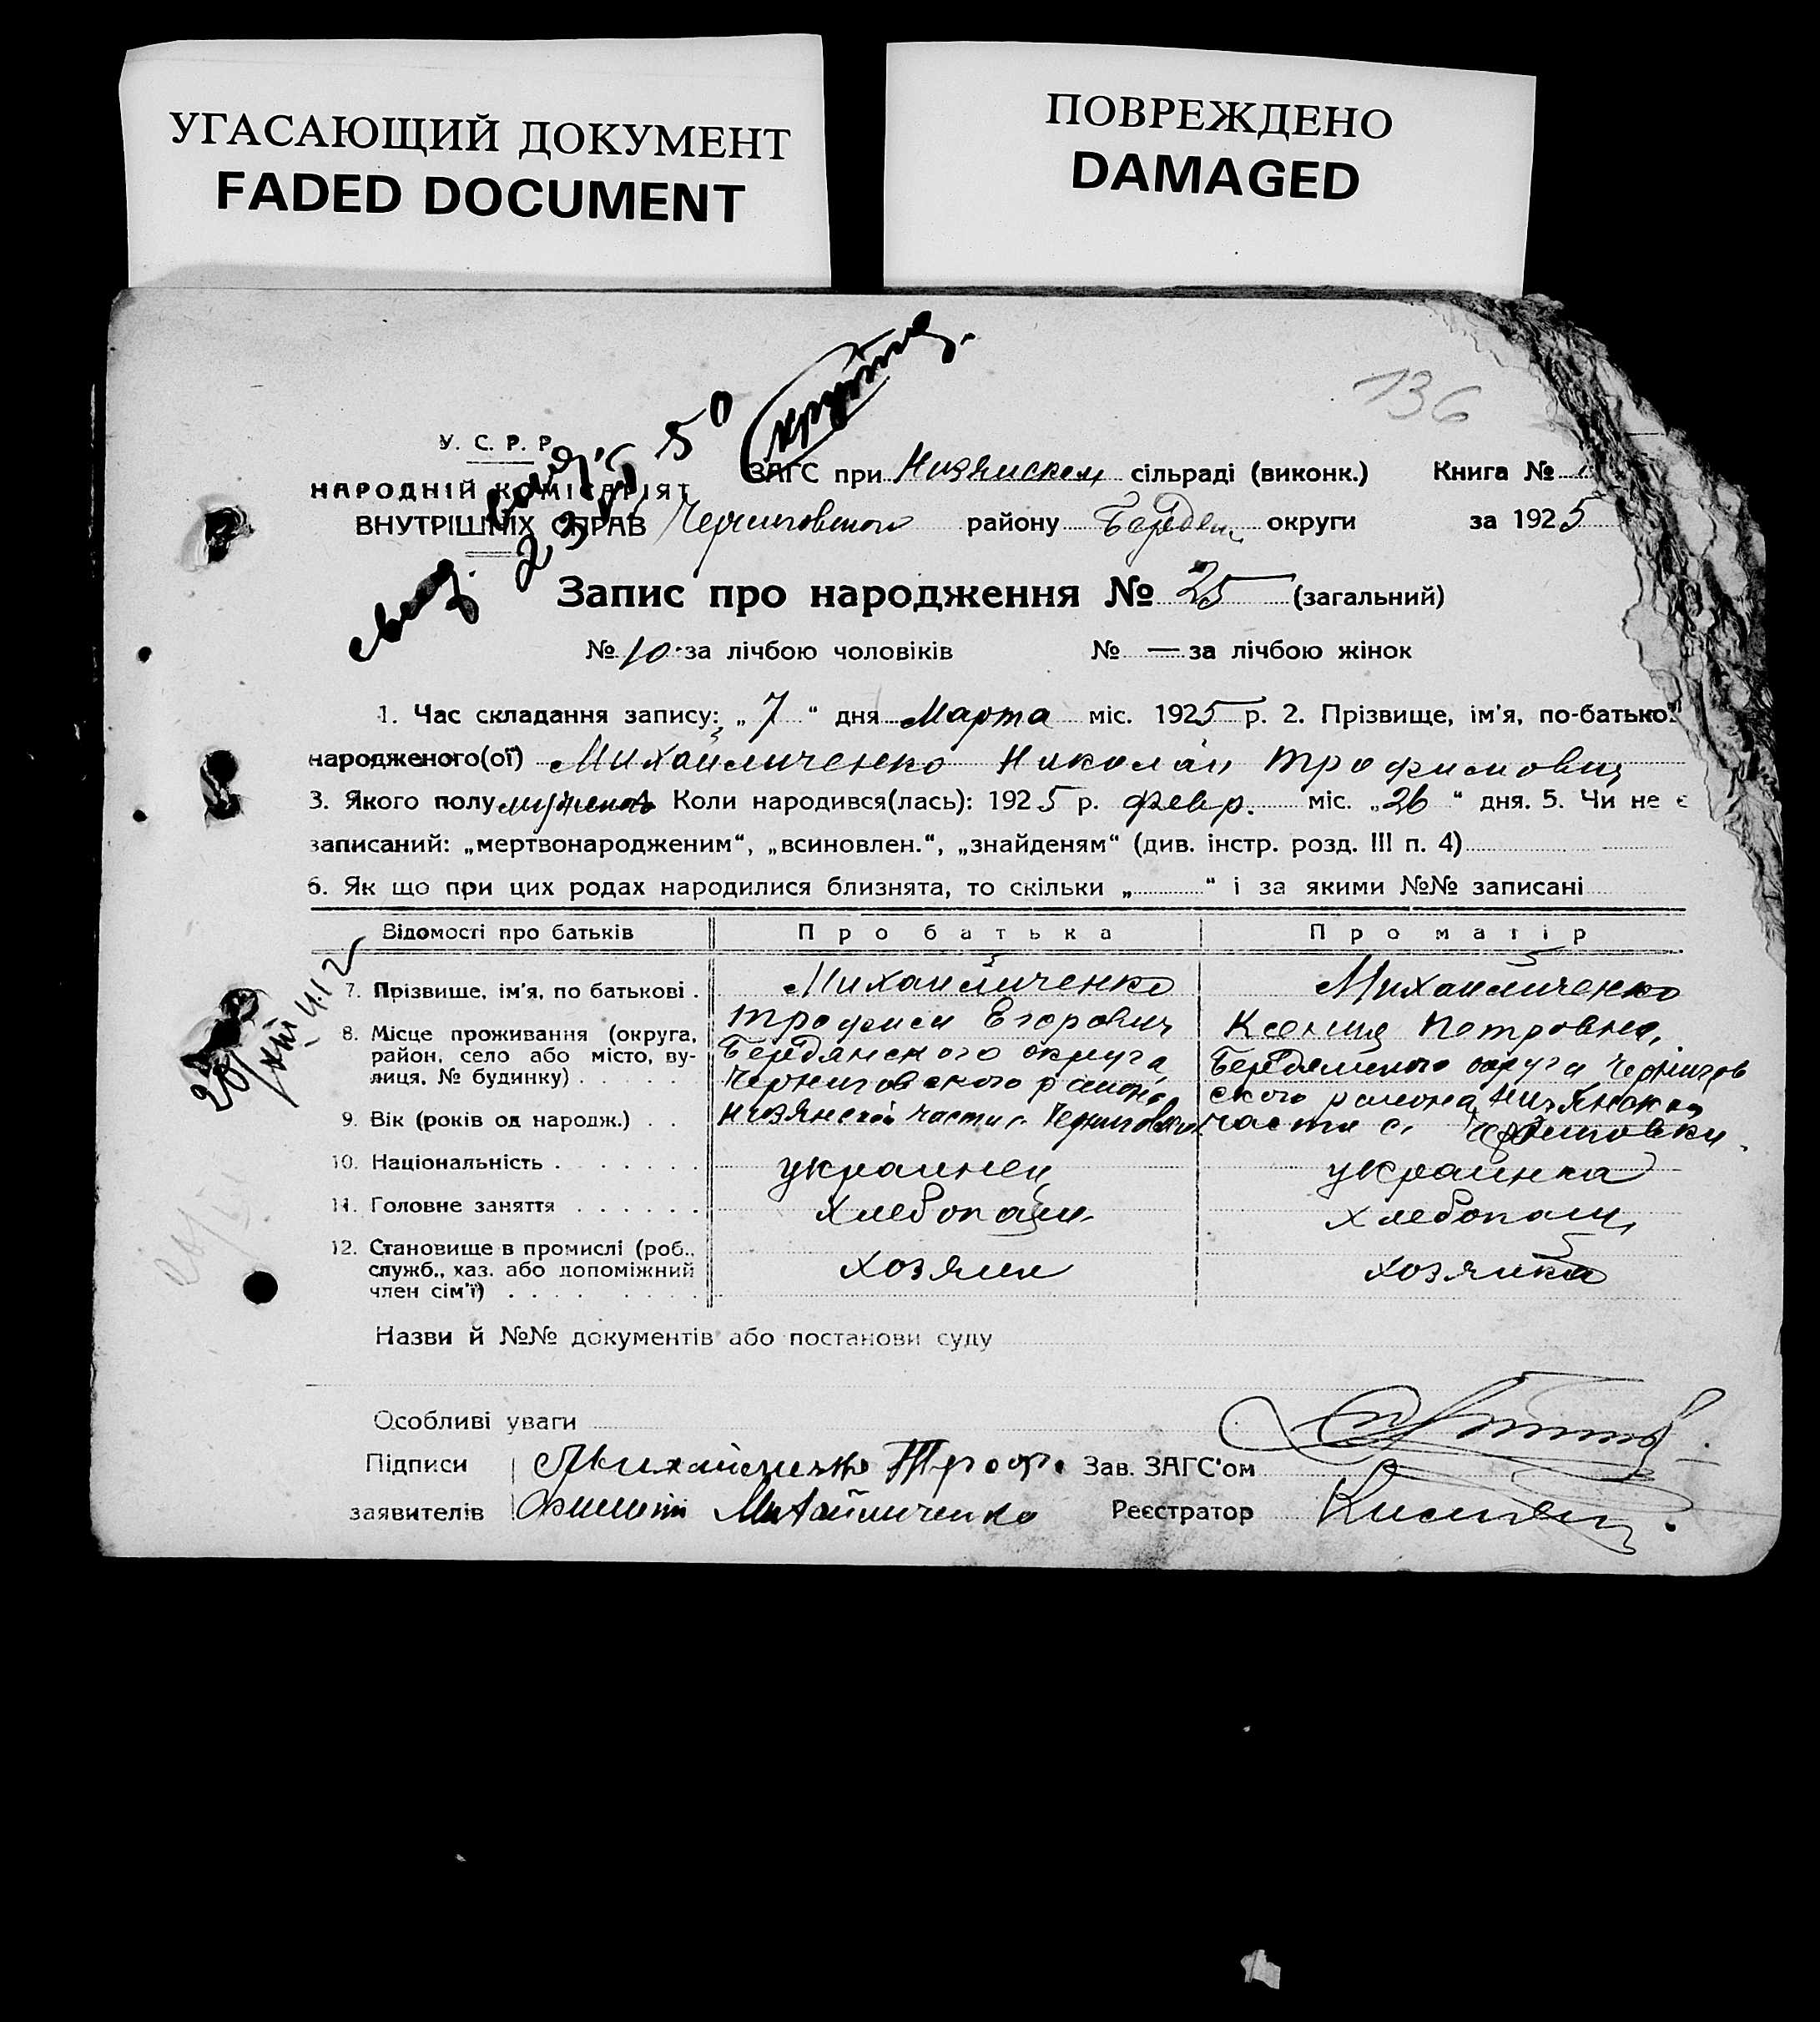 УГАСАЮЩИЙ ДОКУМЕНТ
FADED DOCUMENT
ПОВРЕЖДЕНО
DAMAGED
136
У. С. Р. Р.
НАРОДНІЙ КОМІСАРІЯТ
ВНУТРІШНІХ СПРАВ
ЗАГС при сільраді (виконк.) Книга №
Черниговского району Бердян округи за 1925
Запис про народження № 25 (загальний)
№ 10 за лічбою чоловіків № — за лічбою жінок
1. Час складання запису: „ 7 “ дня Марта міс. 1925 р. 2. Прізвище, ім'я, по-батькові
народженого(ої) Михайличенко Николай Трофимович
3. Якого полу Коли народився(лась): 1925 р. февр. міс. „26“ дня. 5. Чи не є
записаний: „мертвонародженим“, „всиновлен.“, „знайденям“ (див. інстр. розд. III п. 4)
6. Як що при цих родах народилися близнята, то скільки „ “ і за якими №№ записані
Відомості про батьків Про батька Про матір
7. Прізвище, ім'я, по батькові . Михайличенко Михайличенко
Трофим Егорович Ксения Петровна,
8. Місце проживання (округа, район, село або місто, вулиця, № будинку) Бердянского округа Черниговского района Низянской части с. Черниговки Бердянского округа Черниговского района Низянской части с. Черниговки
9. Вік (років од народж.) . .
10. Національність . украинец украинка
11. Головне заняття хлебопаш. хлебопаш.
12. Становище в промислі (роб., служб., хаз. або допоміжний член сім'ї) хозяин хозяйка
Назви й №№ документів або постанови суду
Особливі уваги
Підписи Михайличенко Троф. Зав. ЗАГС'ом
заявителів Михайличенко Реєстратор